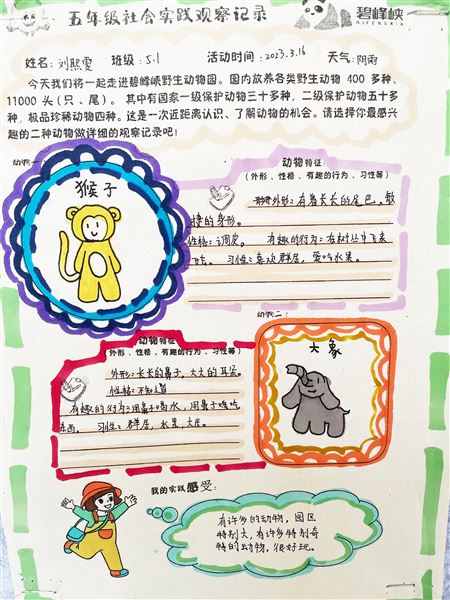 五年级社会实践观察记录
碧峰峡
BIFENGXIA
姓名:刘熙雯 班级:5.1 活动时间:2023.3.16 天气:阴雨
今天我们将一起走进碧峰峡野生动物园。国内放养各类野生动物 400 多种、
11000 头(只、尾)。其中有国家一级保护动物三十多种,二级保护动物五十多
种,极品珍稀动物四种。这是一次近距离认识、了解动物的机会。请选择你最感兴
趣的二种动物做详细的观察记录吧!
动物一:
猴子
动物特征:
(外形、性格、有趣的行为、习性等)
外形:有着长长的尾巴,敏
捷的身形。
性格:调皮。 有趣的行为:在树丛中飞来
飞去。 习性:喜欢群居,爱吃水果。
动物二:
大象
动物特征
(外形、性格、有趣的行为、习性等)
外形:长长的鼻子,大大的耳朵。
性格:不知道
有趣的行为:用鼻子喝水,用鼻子吃
东西。 习性:群居,水果,
我的实践感受:
有许多的动物,园区
特别大,有许多特别奇
特的动物,很好玩。